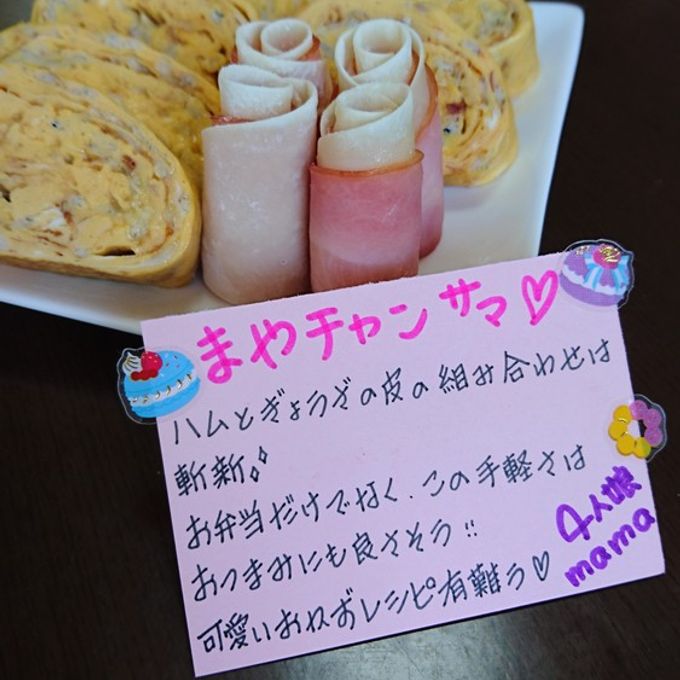 まやチャンサマ♡
ハムとぎょうざの皮の組み合わせは
斬新
お弁当だけでなく、この手軽さは
おつまみにも良さそう!!
可愛いおかずレシピ有難う♡
4人娘
mama